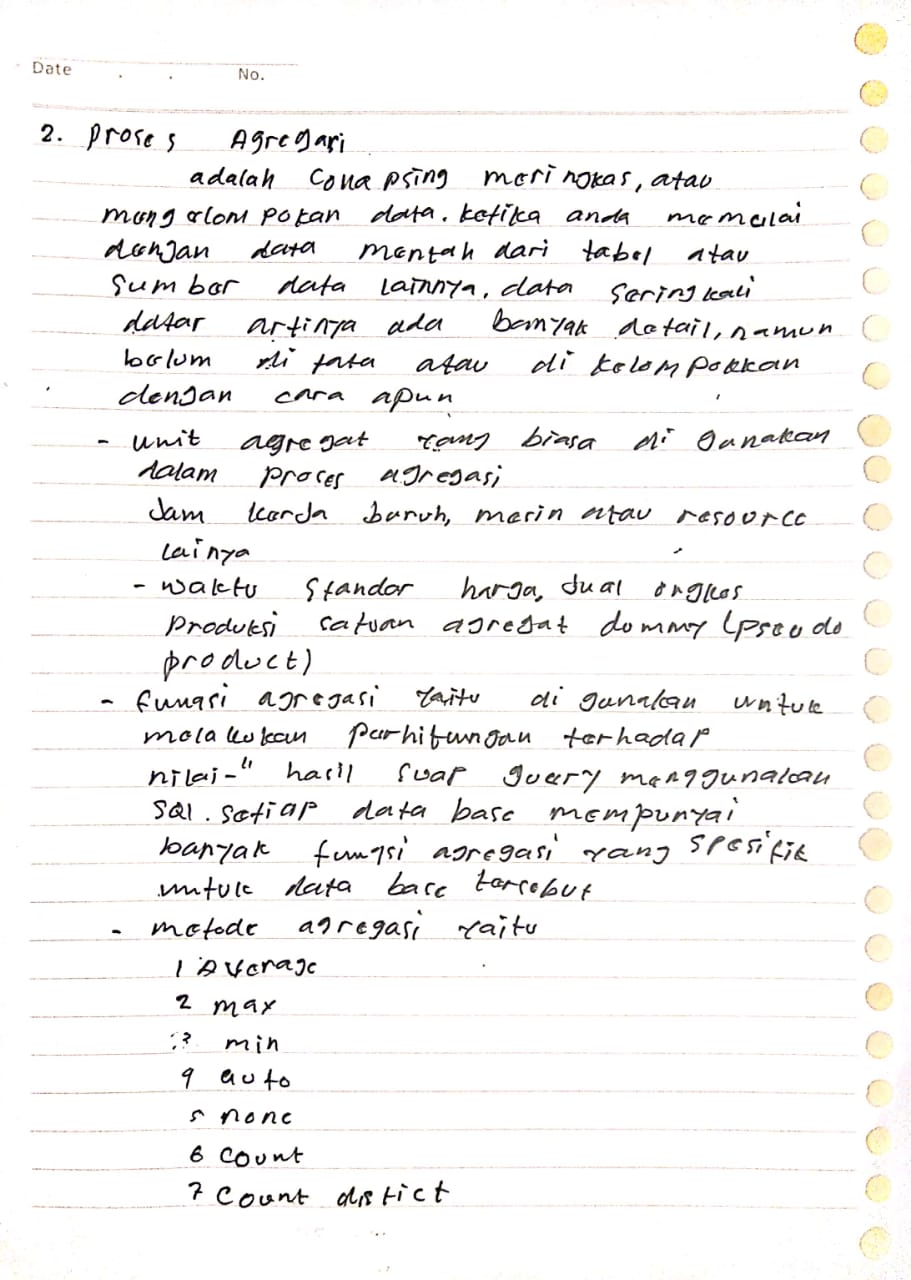 Date . . No.
2. Proses Agregasi
adalah Collapsing meringkas, atau
mengelompokan data. ketika anda memulai
dengan data mentah dari tabel atau
Sumber data lainnya, data seringkali
datar artinya ada banyak detail, namun
belum di tata atau di kelompokkan
dengan cara apun
- unit agregat yang biasa di gunakan
dalam proses agregasi
Jam kerja buruh, mesin atau resource
lainya
- waktu Standar harga, jual ongkos
Produksi satuan agregat dommy (pseudo
product)
- fungsi agregasi yaitu di gunakan untuk
melakukan perhitungan terhadap
nilai-" hasil suap query menggunakan
SQl. setiap data base mempunyai
banyak fungsi agregasi yang spesifik
untuk data base tersebut
- metode agregasi yaitu
1 Average
2 max
3 min
4 auto
5 none
6 Count
7 Count distict